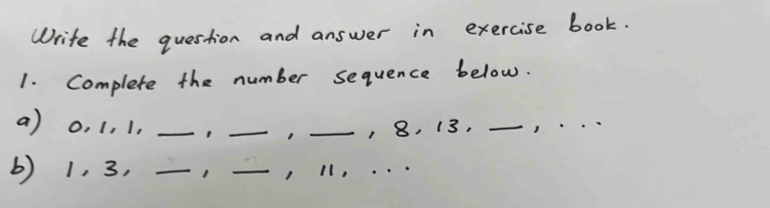 Write the question and answer in exercise book.
1. Complete the number sequence below.
a) 0, 1, 1, __, __, __, 8, 13, __, ...
b) 1, 3, __, __, 11, ...